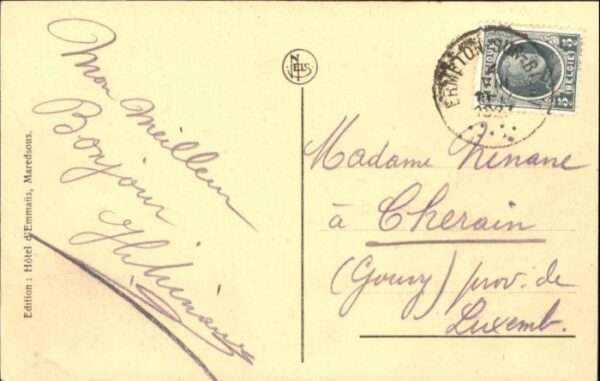 Mon Meilleur
Bonjour
Edition : Hôtel d'Emmaüs, Maredsous.
NELS
ERMETON-SUR-B
BELGIE
5
5
Madame Ninane
à Cherain
(Gouvy) prov. de
Luxemb.